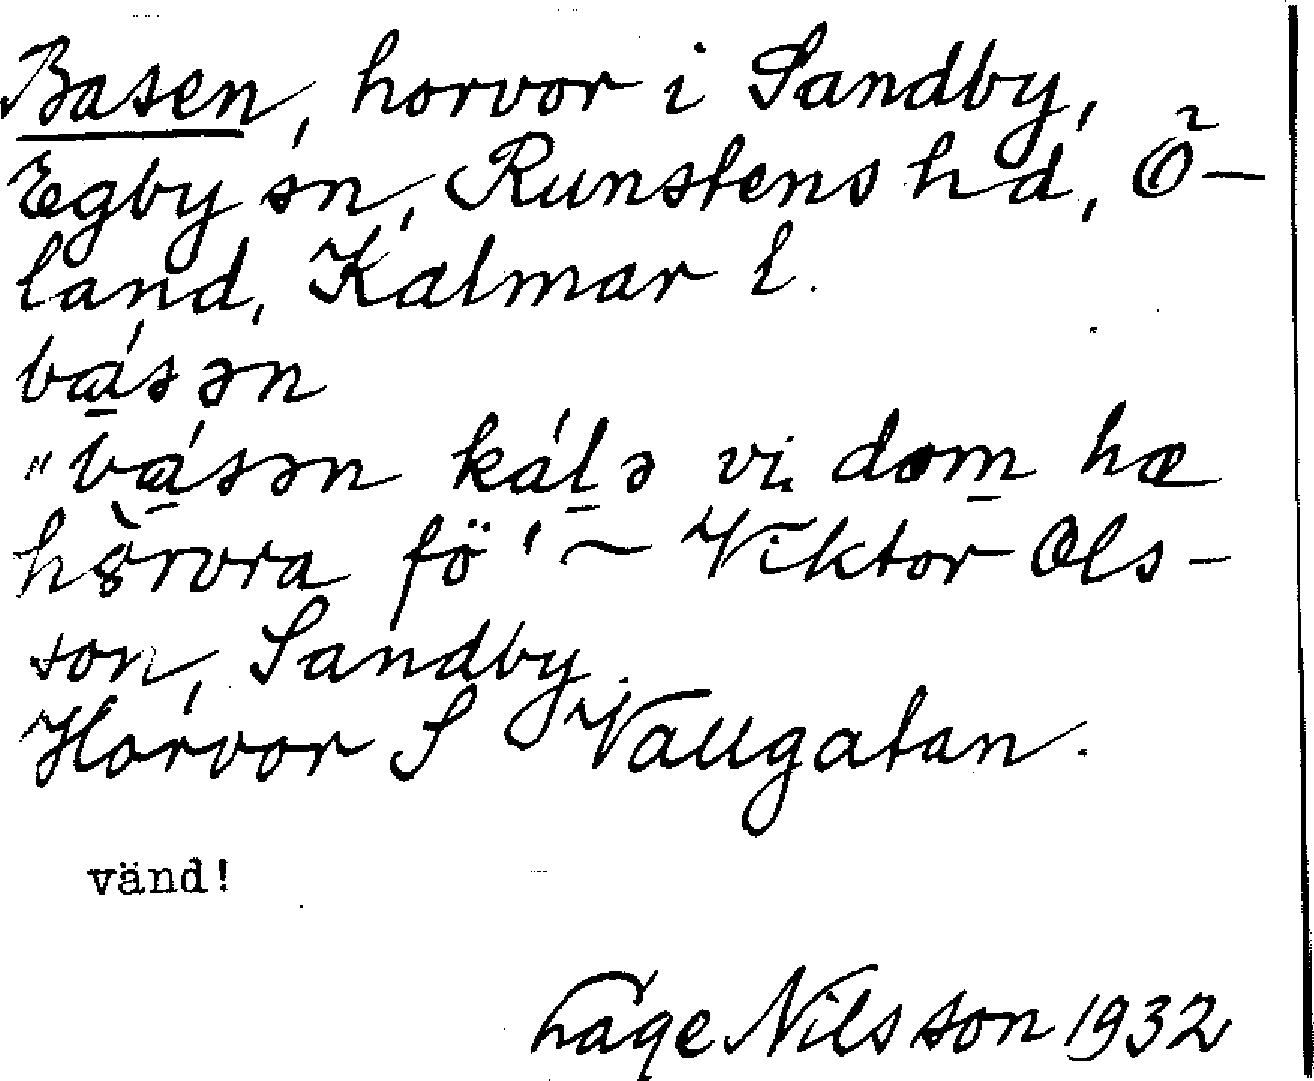 Basen, horvor i Sandby,
Egby sn, Runstens hd, Ö-
land, Kalmar l.
bά̱sən
"bά̱sən káḻə vi dom̱ hæ
hòrvra fö" ~ Viktor Ols-
son, Sandby.
Horvor S Vallgatan.
vänd!
Nilsson 1932